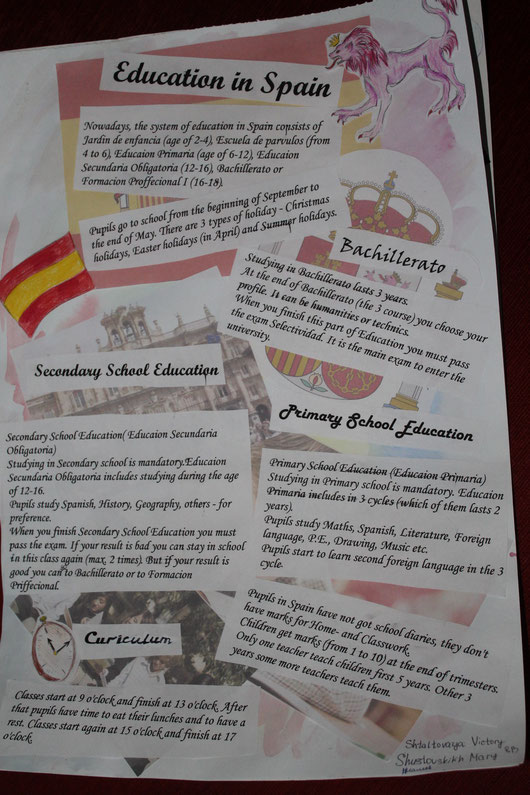 Education in Spain
Nowadays, the system of education in Spain consists of
Jardin de enfancia (age of 2-4), Escuela de parvulos (from
4 to 6), Educaion Primaria (age of 6-12), Educaion
Secundaria Obligatoria (12-16), Bachillerato or
Formacion Proffecional I (16-18).
Pupils go to school from the beginning of September to
the end of May. There are 3 types of holiday - Christmas
holidays, Easter holidays (in April) and Summer holidays.
Bachillerato
Studying in Bachillerato lasts 3 years.
At the end of Bachillerato (the 3 course) you choose your
profile. It can be humanities or technics.
When you finish this part of Education you must pass
the exam Selectividad. It is the main exam to enter the
university.
Secondary School Education
Secondary School Education( Educaion Secundaria
Obligatoria)
Studying in Secondary school is mandatory.Educaion
Secundaria Obligatoria includes studying during the age
of 12-16.
Pupils study Spanish, History, Geography, others - for
preference.
When you finish Secondary School Education you must
pass the exam. If your result is bad you can stay in school
in this class again (max. 2 times). But if your result is
good you can to Bachillerato or to Formacion
Priffecional.
Primary School Education
Primary School Education (Educaion Primaria)
Studying in Primary school is mandatory. Educaion
Primaria includes in 3 cycles (which of them lasts 2
years).
Pupils study Maths, Spanish, Literature, Foreign
language, P.E., Drawing, Music etc.
Pupils start to learn second foreign language in the 3
cycle.
Pupils in Spain have not got school diaries, they don't
have marks for Home- and Classwork.
Children get marks (from 1 to 10) at the end of trimesters.
Only one teacher teach children first 5 years. Other 3
years some more teachers teach them.
Curiculum
Classes start at 9 o'clock and finish at 13 o'clock. After
that pupils have time to eat their lunches and to have a
rest. Classes start again at 15 o'clock and finish at 17
o'clock
Shtaltovaya Victory
Mary